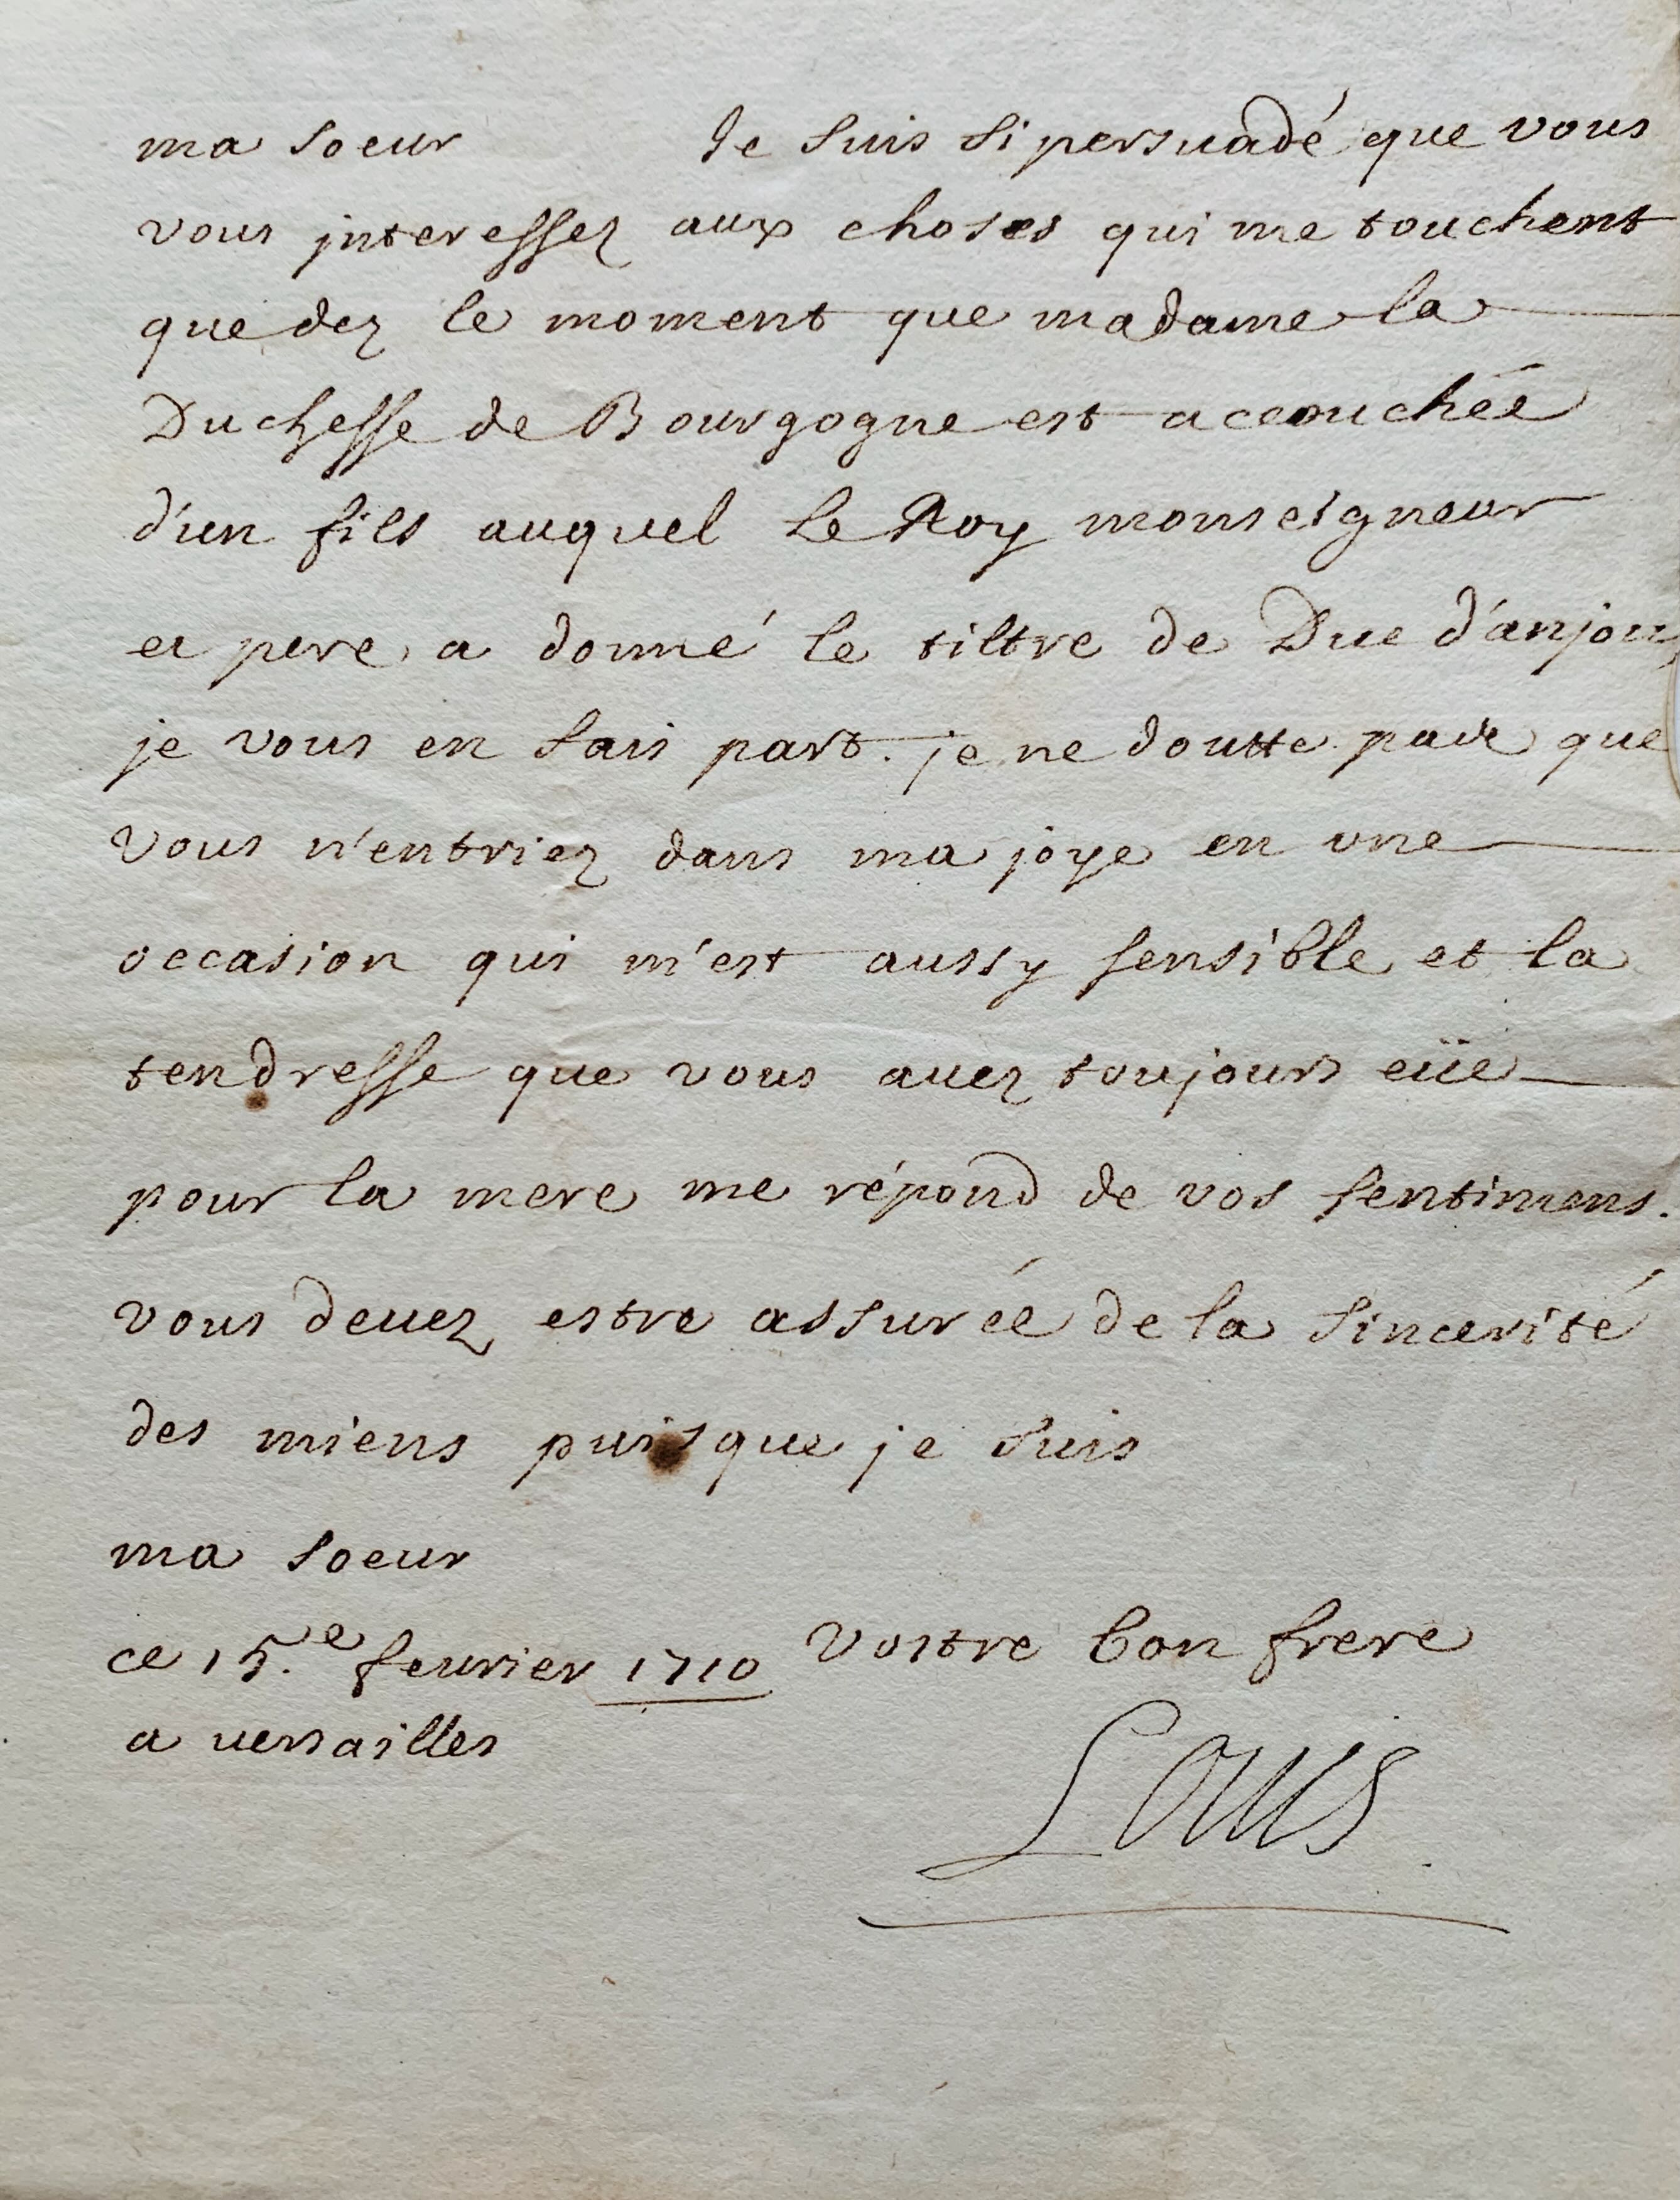 ma soeur Je suis si persuadé que vous
vous jnteressez aux choses qui me touchent
que dez le moment que madame la
Duchesse de Bourgogne est accouchée
d'un fils auquel le Roy monseigneur
et pere a donné le tiltre de Duc d'anjou,
je vous en fais part. je ne doutte pas que
vous n'entriez dans ma joye en une
occasion qui m'est aussy sensible et la
tendresse que vous auez toujours eüe
pour la mere me répond de vos sentimens.
vous deuez estre assurée de la sincerité
des miens puisque je suis
ma soeur
vostre bon frere
ce 15.e feurier 1710
a uersailles
Louis